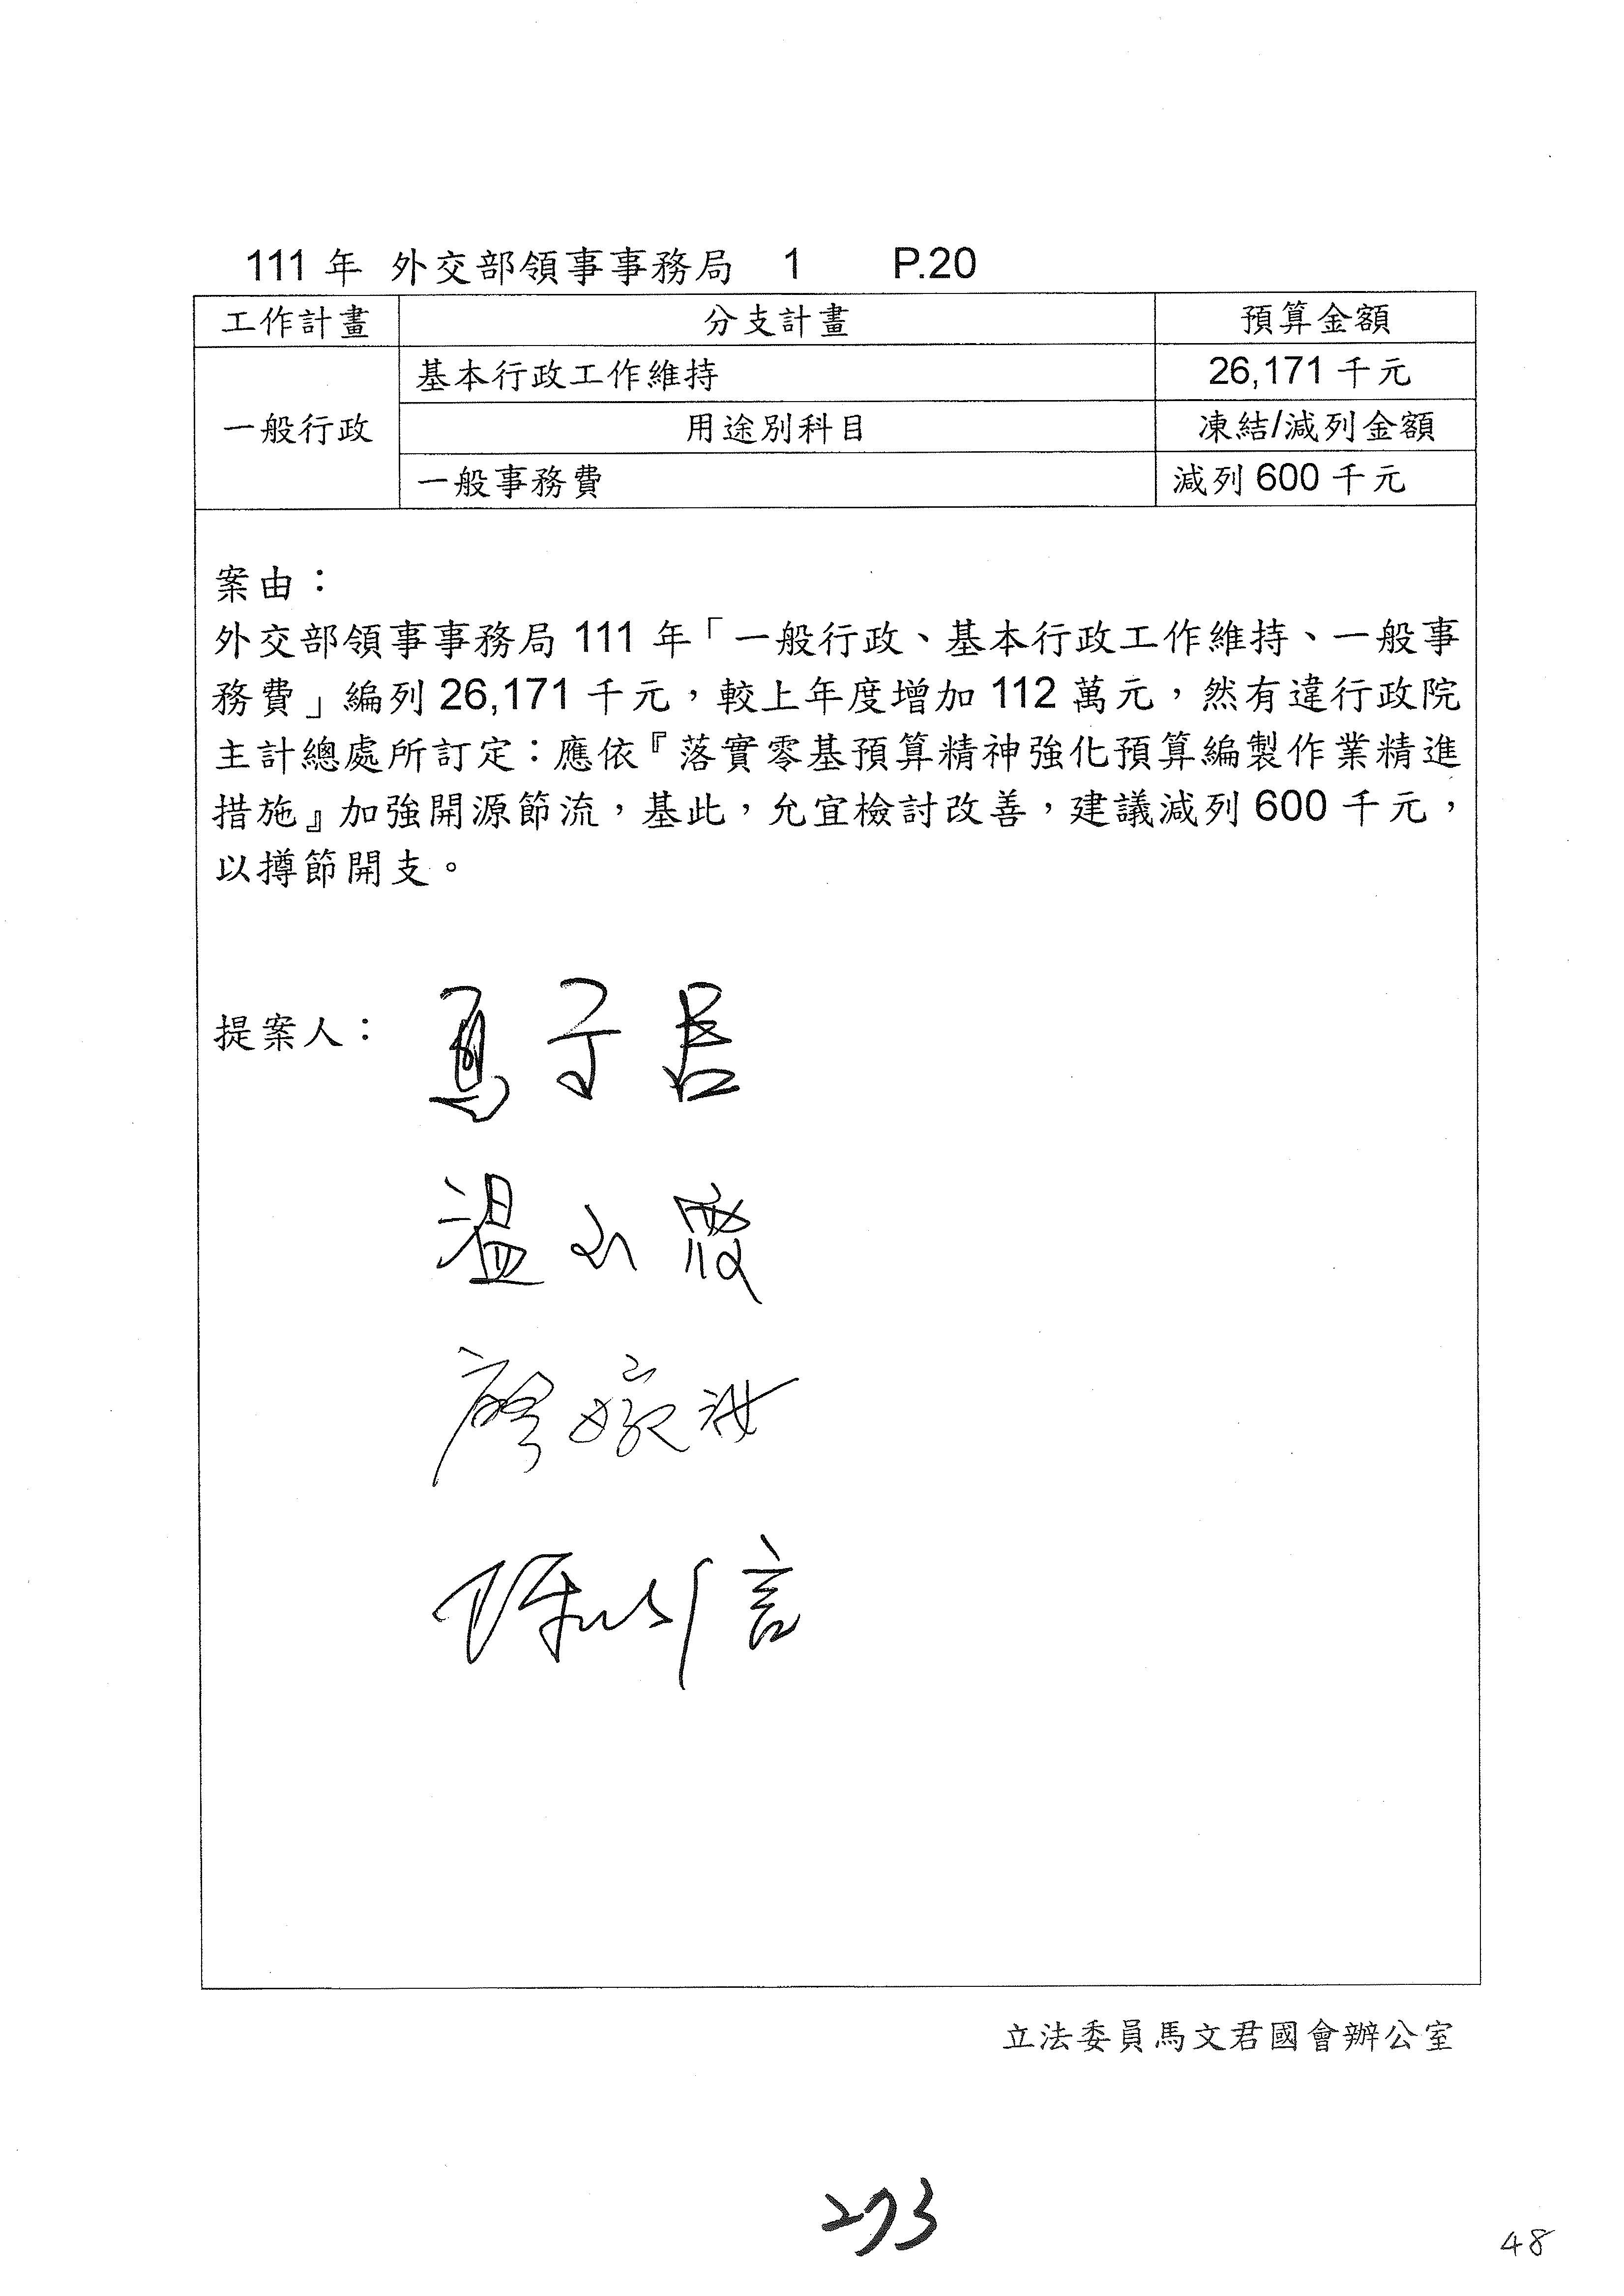 111 年 外交部領事事務局 1 P.20
工作計畫 分支計畫 預算金額
基本行政工作維持 26,171 千元
一般行政 用途別科目 凍結/減列金額
一般事務費 減列 600 千元
案由：
外交部領事事務局 111 年「一般行政、基本行政工作維持、一般事
務費」編列 26,171 千元，較上年度增加 112 萬元，然有違行政院
主計總處所訂定：應依『落實零基預算精神強化預算編製作業精進
措施』加強開源節流，基此，允宜檢討改善，建議減列 600 千元，
以撙節開支。
提案人：
溫玉霞
廖婉汝
陳以信
立法委員馬文君國會辦公室
273
48